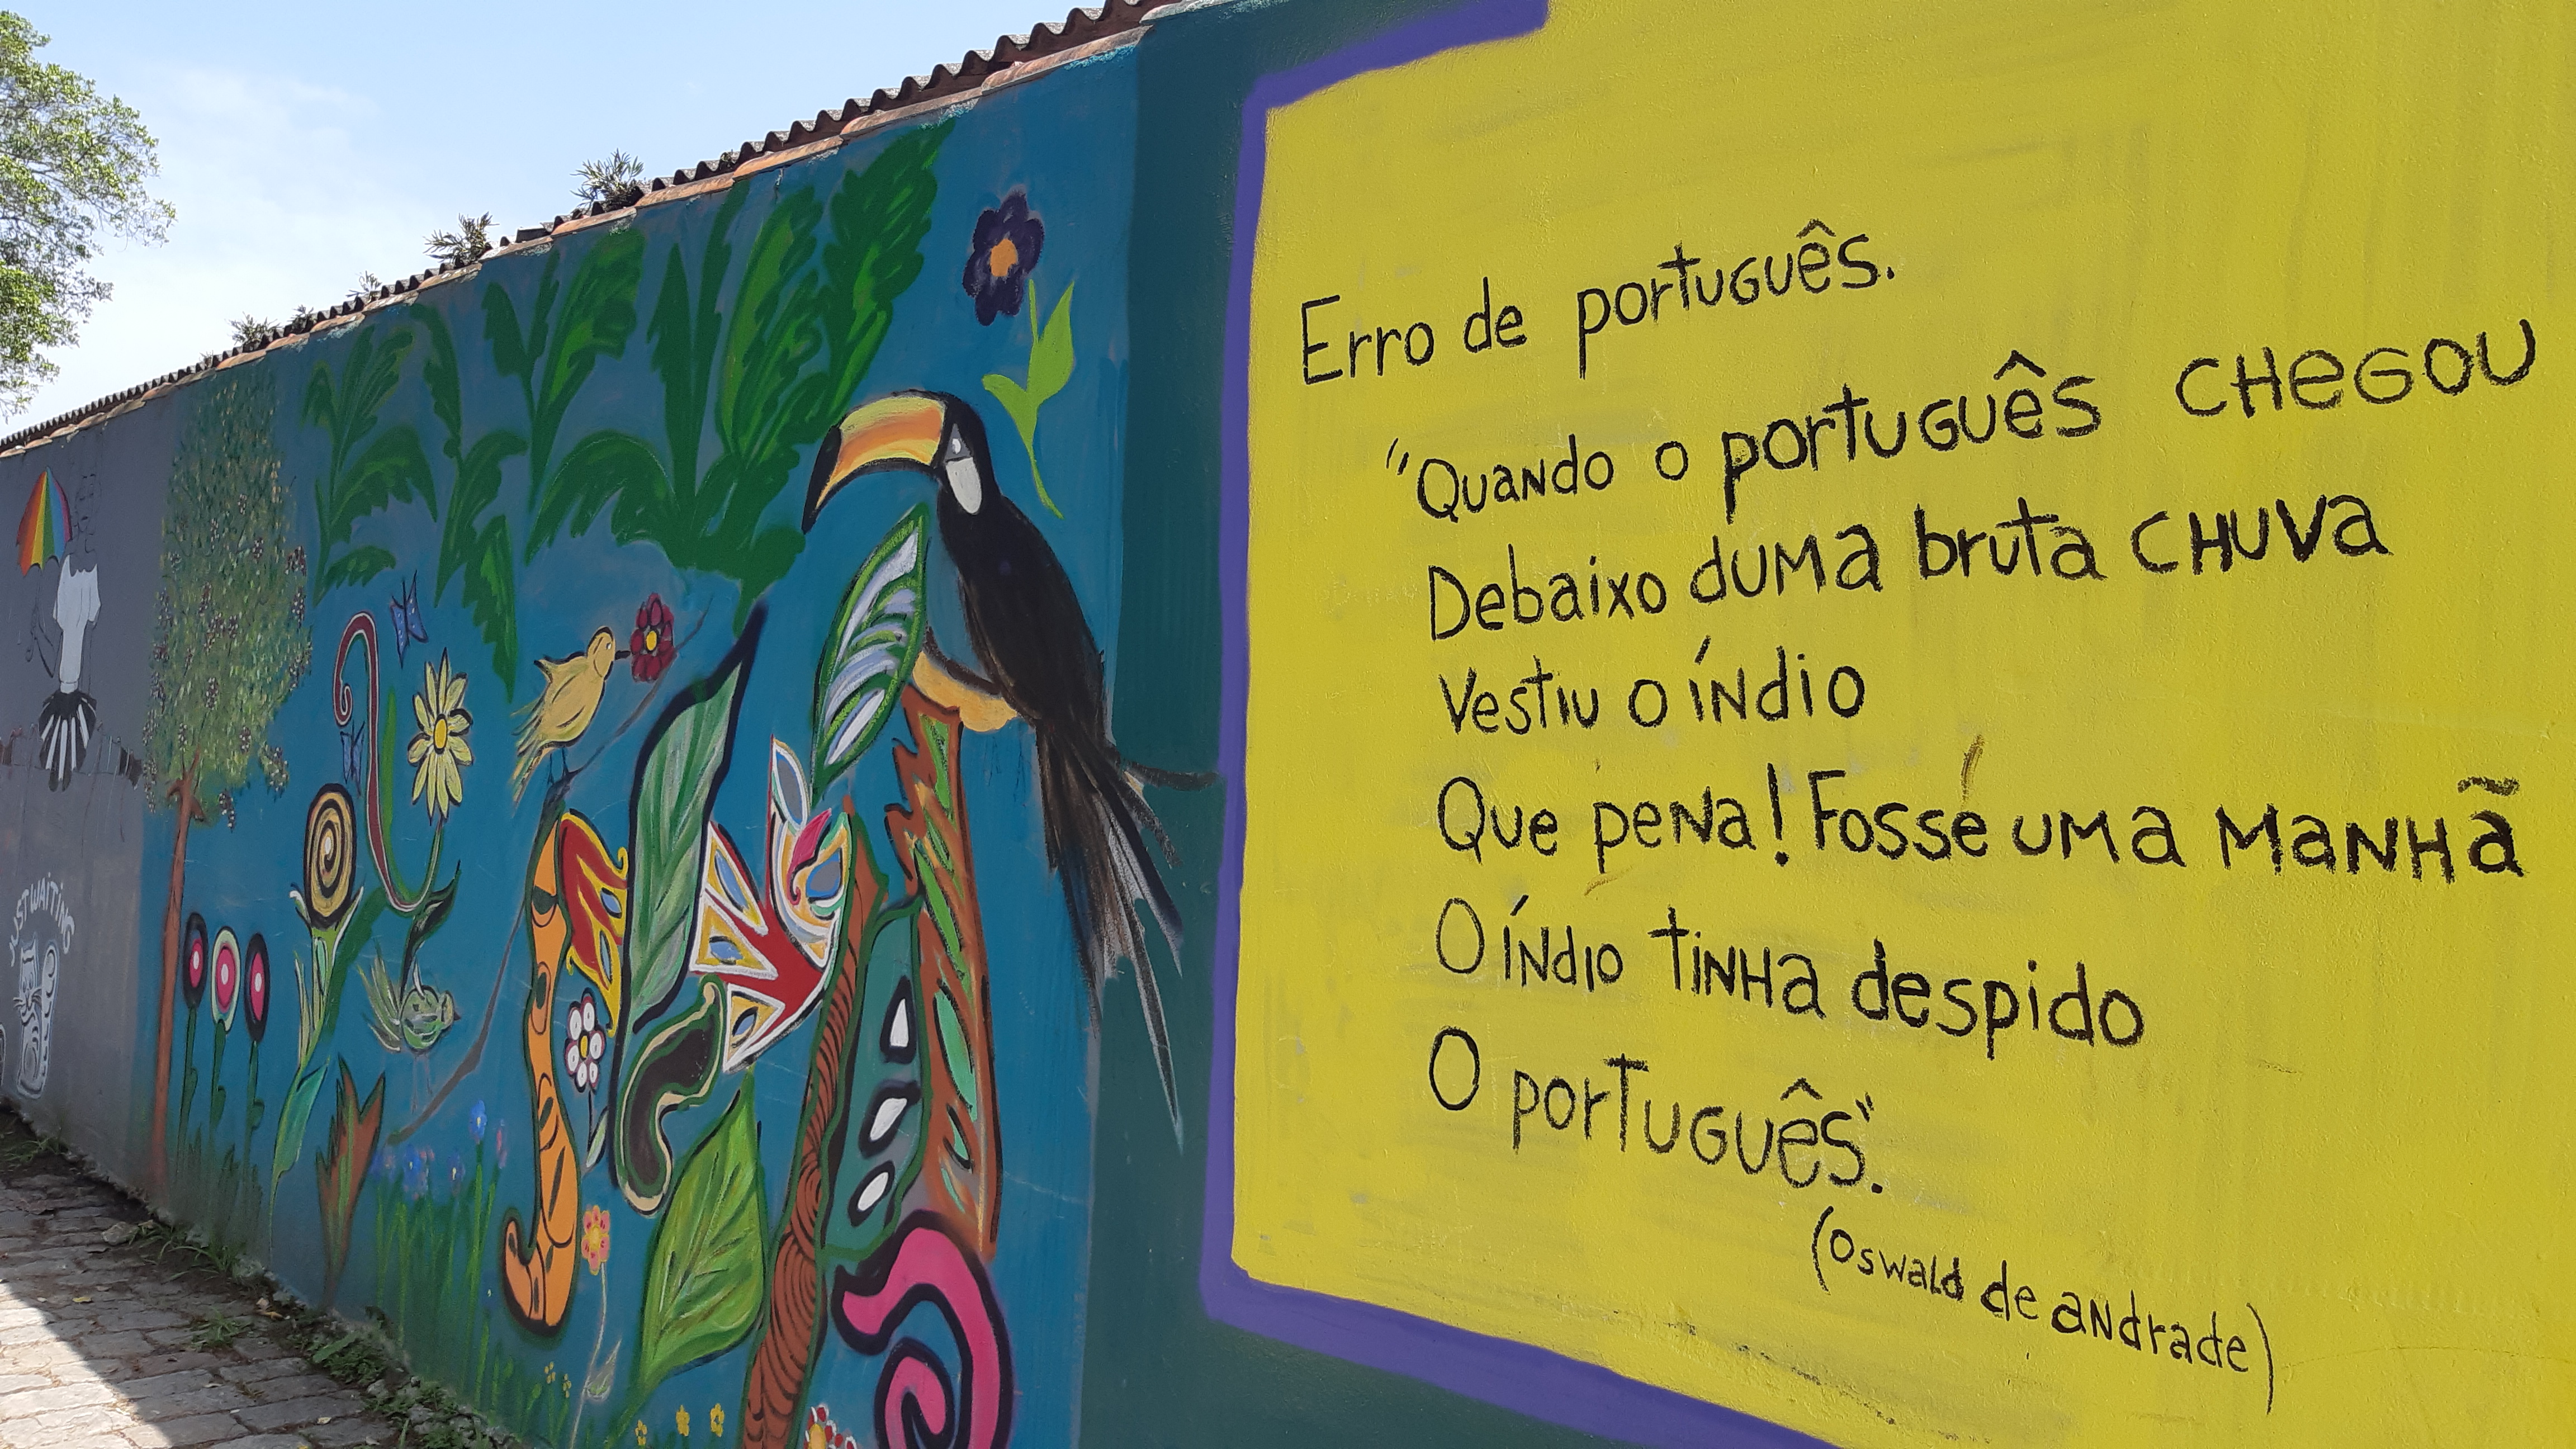 Erro de português.
"Quando o português chegou
Debaixo duma bruta chuva
Vestiu o índio
Que pena! Fosse uma manhã
O índio tinha despido
O português".
(Oswald de andrade)
JUST WAITING